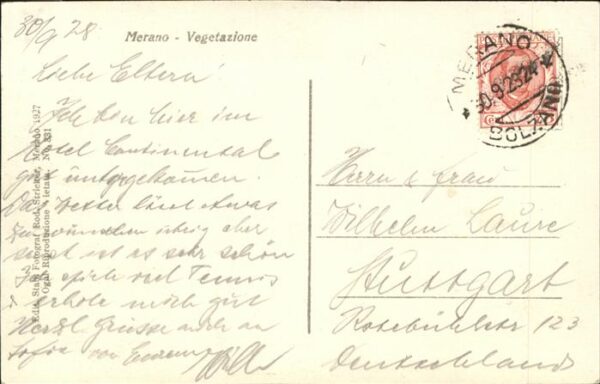 30/9 28
Merano - Vegetazione
Liebe Eltern!
Ich bin hier im
Hotel Continental
gut untergekommen.
Das Wetter lässt etwas
zu wünschen übrig aber
sonst ist es sehr schön
Ich spiele viel Tennis
erhole mich gut
Herzl Grüsse auch an
Sofie von Eurem
Willi
Ediz. Stab. Fotograf. Rod. Stricker, Merano 1927
Ogni Riproduzione è ietata No. 331
MERANO
30.9.28 24
BOLZANO
Herrn & Frau
Wilhelm
Stuttgart
Rotebühlstr 123
Deutschland